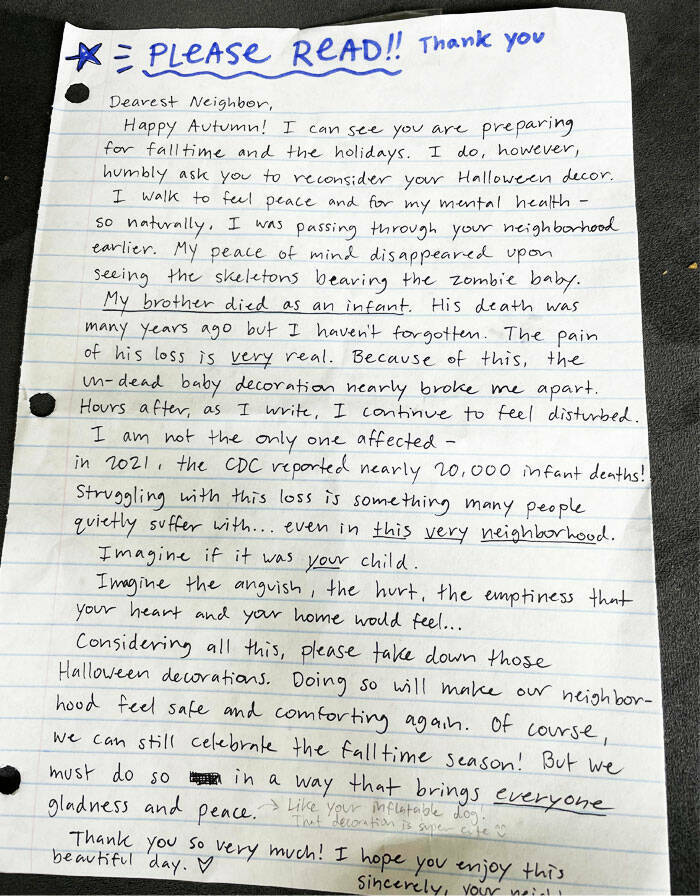 PLEASE READ!! Thank you
Dearest Neighbor,
Happy Autumn! I can see you are preparing
for falltime and the holidays. I do, however,
humbly ask you to reconsider your Halloween decor.
I walk to feel peace and for my mental health -
so naturally, I was passing through your neighborhood
earlier. My peace of mind disappeared upon
seeing the skeletons bearing the zombie baby.
My brother died as an infant. His death was
many years ago but I haven't forgotten. The pain
of his loss is very real. Because of this, the
un-dead baby decoration nearly broke me apart.
Hours after, as I write, I continue to feel disturbed.
I am not the only one affected -
in 2021, the CDC reported nearly 20,000 infant deaths!
Struggling with this loss is something many people
quietly suffer with... even in this very neighborhood.
Imagine if it was your child.
Imagine the anguish, the hurt, the emptiness that
your heart and your home would feel...
Considering all this, please take down those
Halloween decorations. Doing so will make our neighbor-
hood feel safe and comforting again. Of course,
we can still celebrate the falltime season! But we
must do so in a way that brings everyone
gladness and peace. → Like your inflatable dog!
That decoration is super cute
Thank you so very much! I hope you enjoy this
beautiful day. ♡
Sincerely, your